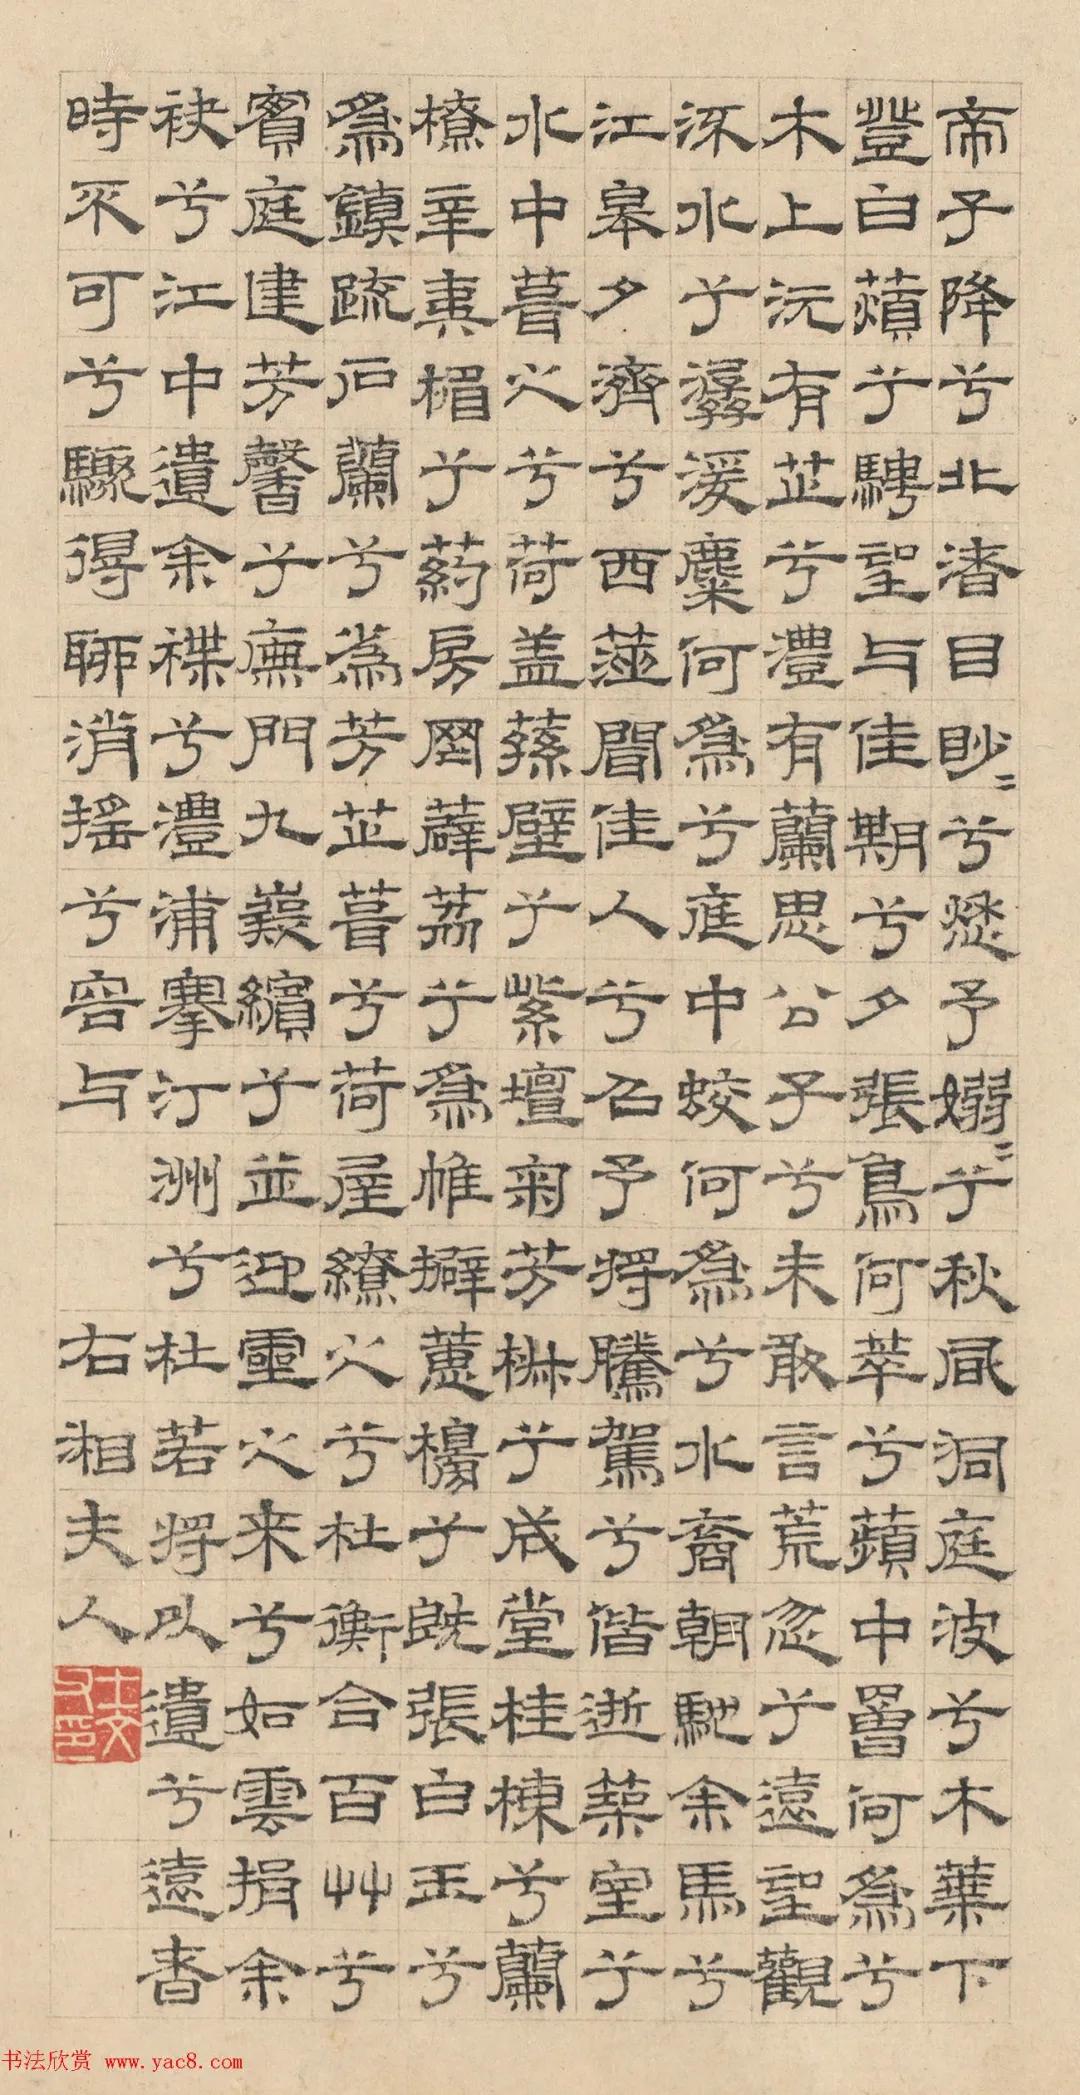 帝子降兮北渚目眇〻兮愁予嫋〻兮秋風洞庭波兮木葉下
登白薠兮騁望与佳期兮夕張鳥何萃兮蘋中罾何爲兮
木上沅有芷兮澧有蘭思公子兮未敢言荒忽兮遠望觀
流水兮潺湲麋何爲兮庭中蛟何爲兮水裔朝馳余馬兮
江皋夕濟兮西澨聞佳人兮召予將騰駕兮偕逝築室兮
水中葺之兮荷盖蓀壁兮紫壇匊芳椒兮成堂桂棟兮蘭
橑辛夷楣兮葯房罔薜荔兮爲帷擗蕙櫋兮既張白玉兮
爲鎮疏石蘭兮爲芳芷葺兮荷屋繚之兮杜衡合百艸兮
實庭建芳馨兮廡門九嶷繽兮並迎靈之来兮如雲捐余
袂兮江中遺余褋兮澧浦搴汀洲兮杜若將以遺兮遠者
時不可兮驟得聊消搖兮容与
右湘夫人
书法欣赏 www.yac8.com